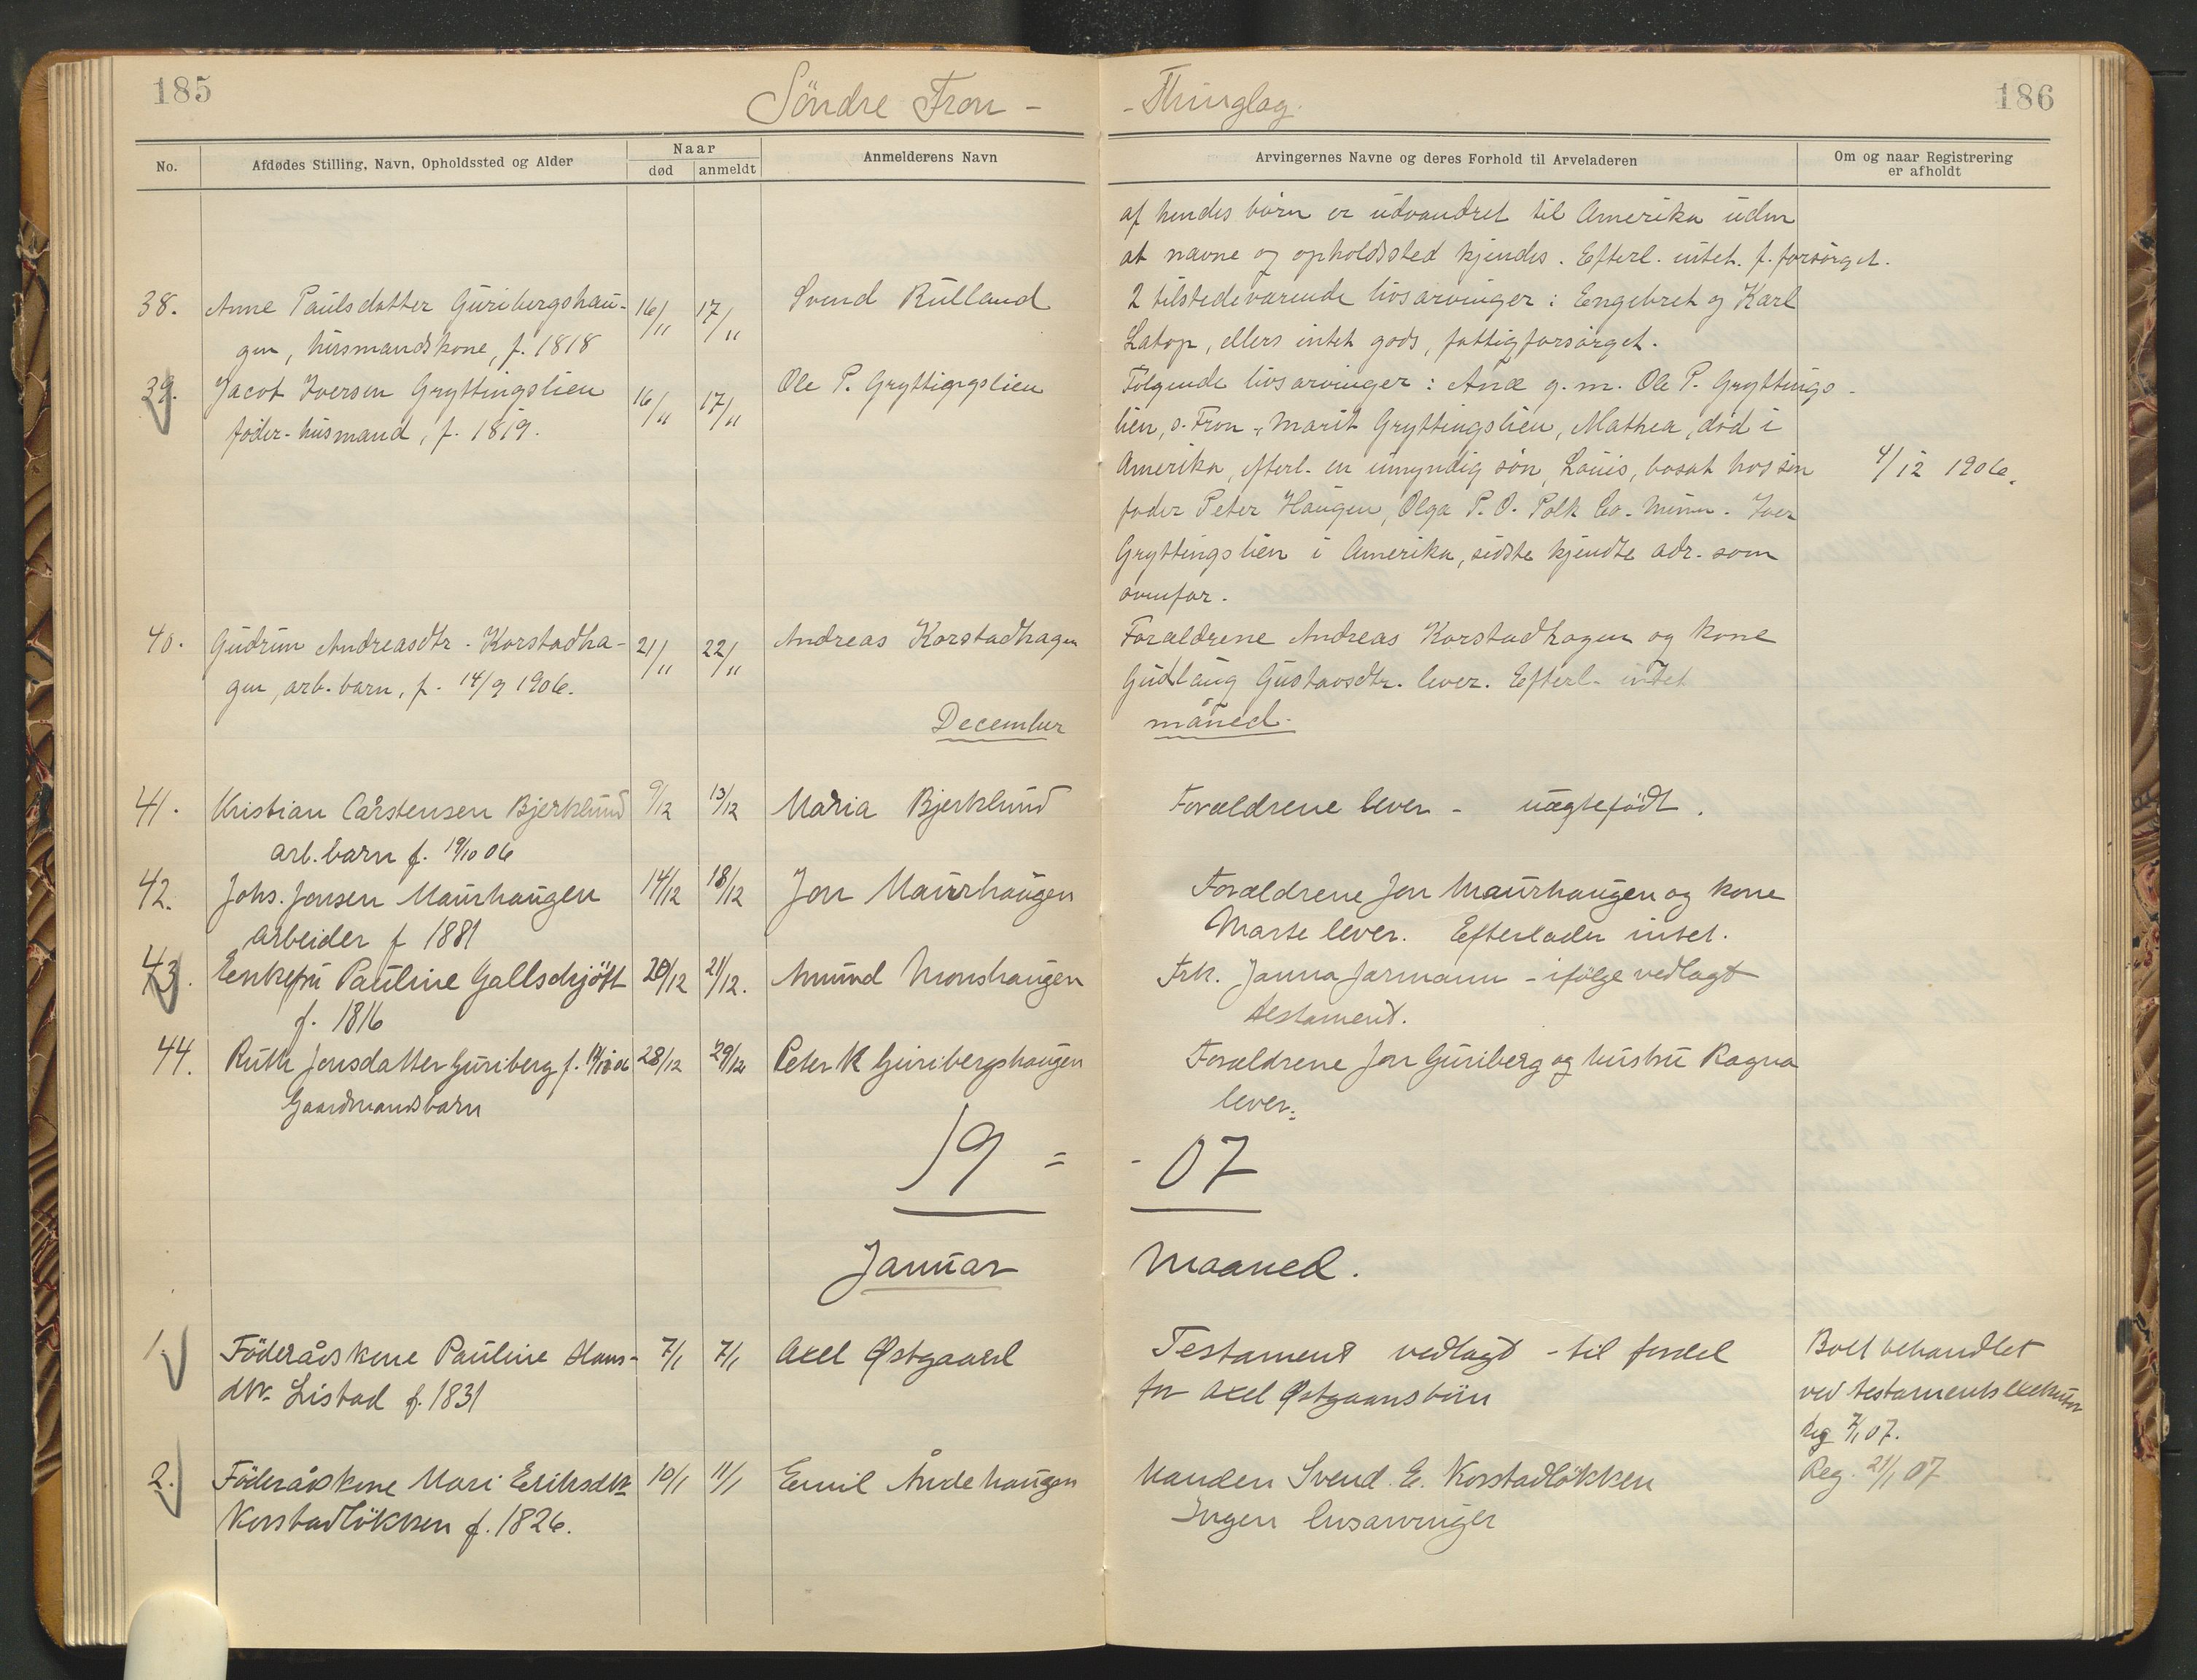 185
Söndre Fron -
- Thinglag.
186
No.
Afdødes Stilling, Navn, Opholdssted og Alder
Naar
død
anmeldt
Anmelderens Navn
Arvingernes Navne og deres Forhold til Arveladeren
Om og naar Registrering
er afholdt
af hendes börn er udvandret til Amerika uden
at navne og opholdssted kjendes. Efterl. intet. f. forsörget.
38. Anne Paulsdatter Guribergshau- 16/11 17/11 Svend Rulland 2 tilstedeværende livsarvinger: Engebret og Karl
gen, husmandskone, f. 1818 Latop, ellers intet gods, fattigforsörget.
39. Jacob Iversen Gryttingslien 16/11 17/11 Ole P. Gryttingslien Fölgende livsarvinger: Ane g.m. Ole P. Gryttings-
föder-husmand, f. 1819. lien, s. Fron, Marit Gryttingslien, Mathea, död i
Amerika, efterl. en umyndig sön, Louis, bosat hos sin 4/12 1906.
fader Peter Haugen, Olga P.O. Polk Co. Minn. Iver
Gryttingslien i Amerika, sidste kjendte adr. som
ovenfor.
40. Gudrun Andreasdtr. Korstadha- 21/11 22/11 Andreas Korstadhagen Forældrene Andreas Korstadhagen og kone
gen, arb. barn, f. 14/9 1906. Gudlaug Gustavsdtr. lever. Efterl. intet
December måned.
41. Kristian Carstensen Bjerklund 9/12 13/12 Maria Bjerklund Forældrene lever - uægtefödt.
arb. barn f. 19/10 06
42. Johs. Jonsen Maurhaugen 14/12 18/12 Jon Maurhaugen Forældrene Jon Maurhaugen og kone
arbeider f 1881 Marte lever. Efterlader intet.
43. Enkefru Pauline Gallschjött 20/12 21/12. Amund Monshaugen Frk. Janna Jarmann - ifölge vedlagt
f. 1816 testament.
44. Ruth Jonsdatter Guriberg f. 06 28/12 29/12 Peter K Guribergshaugen Forældrene Jon Guriberg og hustru Ragna
Gaardmandsbarn lever.
19 = - 07
Januar Maaned.
1. Föderådskone Pauline Hans- 7/1 7/1 Axel Østgaard Testament vedlagt - til fordel Boet behandlet
dtr. Listad f. 1831 for Axel Østgaards börn ved testamentsexekutor
Reg 7/1 07.
2. Föderådskone Mari Eriksdtr 10/1 11/1 Emil Åndehaugen Manden Svend E. Korstadlökken Reg. 21/1 07
Korstadlökken f. 1826. Ingen livsarvinger